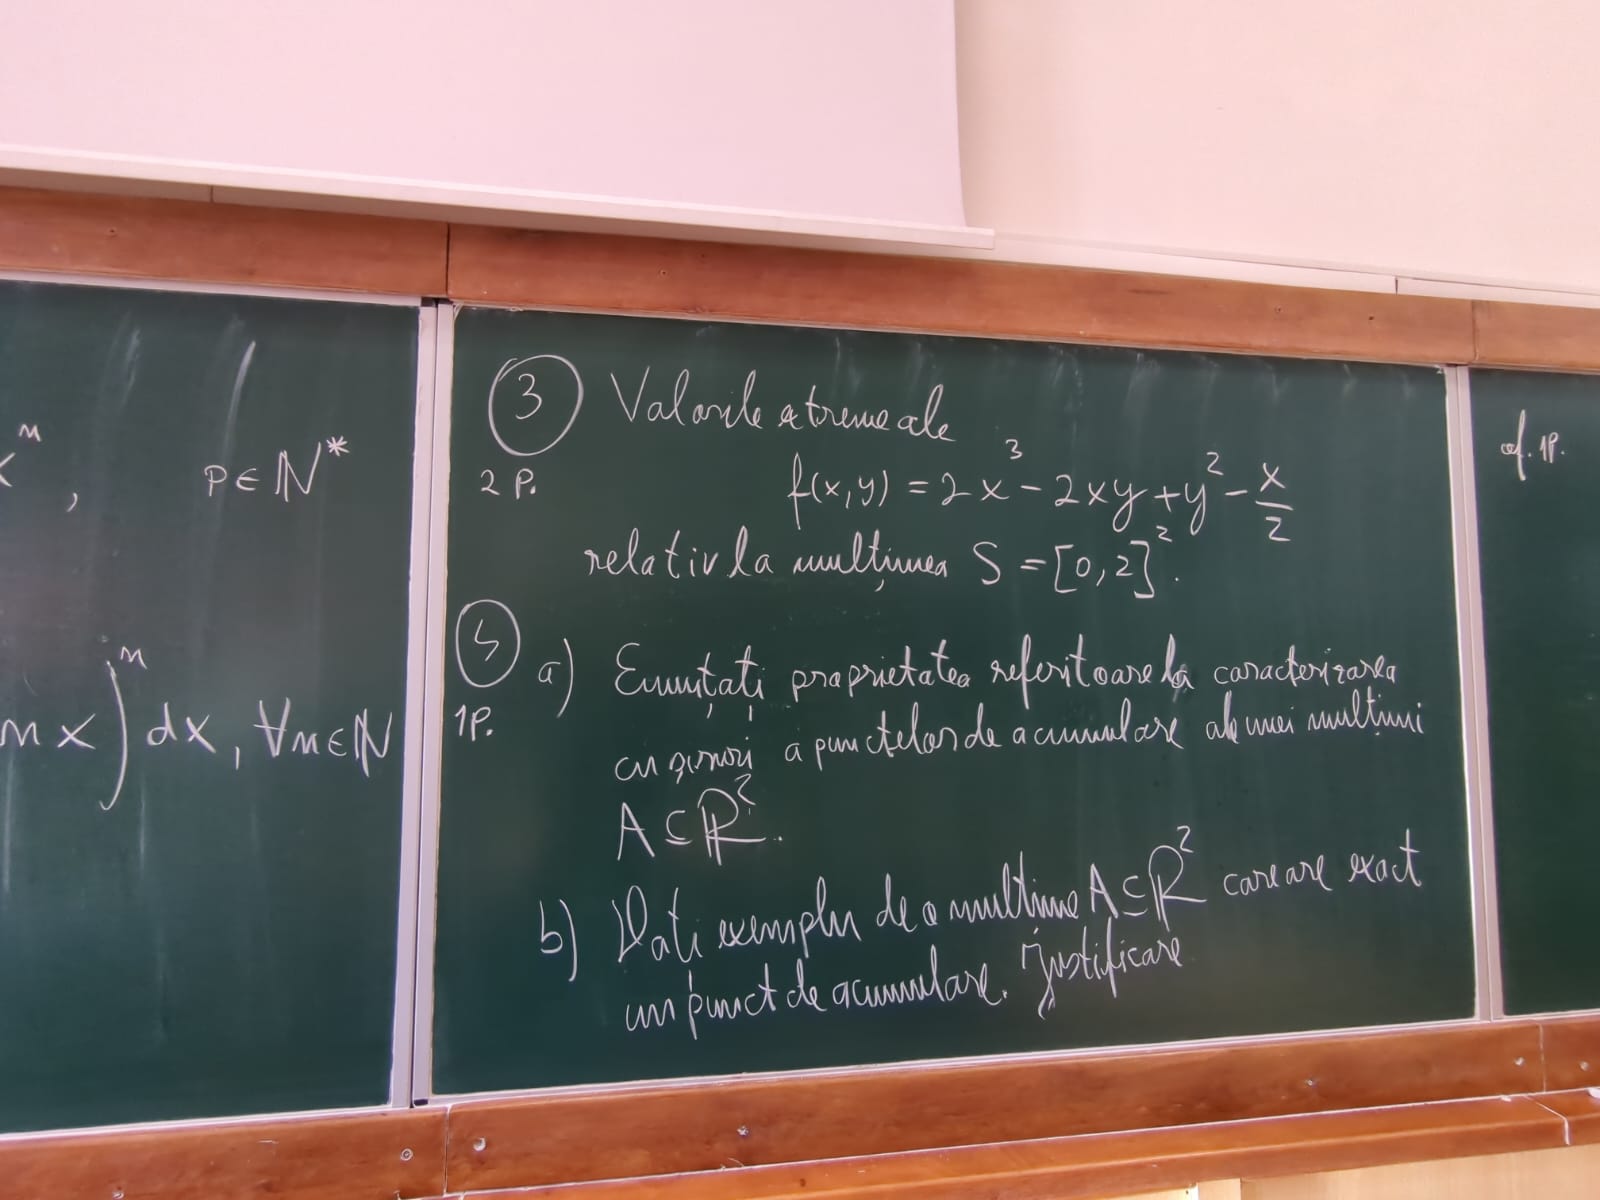 xⁿ, p∈ℕ*
nx)ⁿ dx, ∀n∈ℕ
③ Valorile extreme ale
2 p. f(x,y) = 2x³ - 2xy + y² - x/2
relativ la mulțimea S = [0,2]².
④ a) Enunțați proprietatea referitoare la caracterizarea
1p. cu șiruri a punctelor de acumulare ale unei mulțimi
A ⊆ ℝ².
b) Dați exemplu de o mulțime A ⊆ ℝ² care are exact
un punct de acumulare. Justificare
of. 1p.